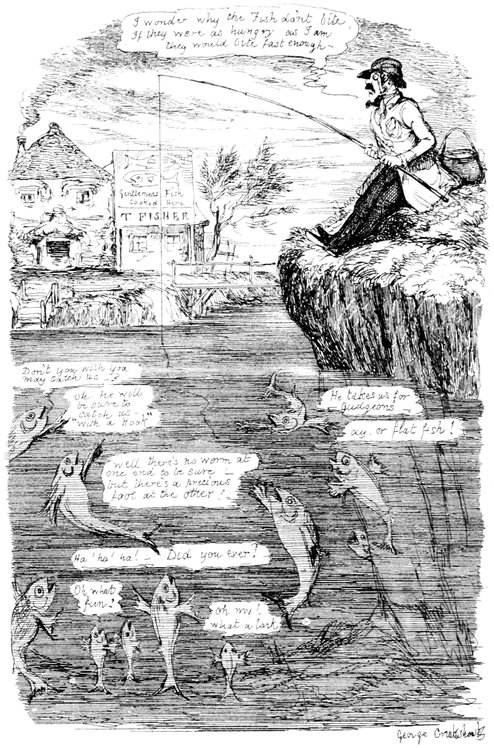 I wonder why the Fish don't bite
If they were as hungry as I am
they would bite fast enough -
Gentlemens Fish
Cooked Here
T FISHER
Don't you wish you
may catch us - ?
Oh, he will
be sure to
catch us -
"with a Hook"
He takes us for
Gudgeons -
ay, or flat fish!
Well there's no worm at
one end to be sure -
but there's a precious
fool at the other!
Ha! ha! ha! - Did you ever!
Oh what
fun!
Oh my!
what a lark
George Cruikshank